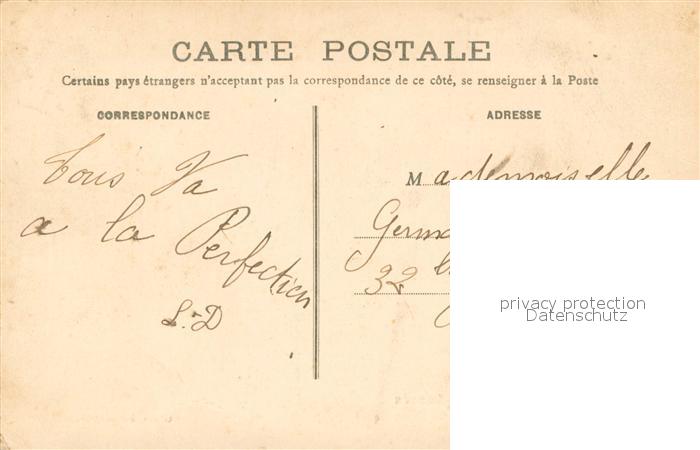 CARTE POSTALE
Certains pays étrangers n'acceptent pas la correspondance de ce côté, se renseigner à la Poste
CORRESPONDANCE
ADRESSE
Tous Va
a la Perfection
L-D
Mademoiselle
Germa
32
privacy protection
Datenschutz